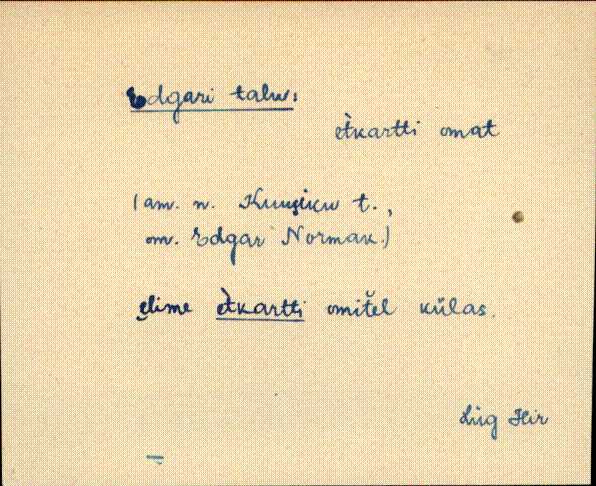 Edgari talu:
èt̀kartti omat
(am. n. Kuuşiku t.,
om. Edgar Normak.)
ęlime èt̀kartti omiťel külas.
Lüg Hir